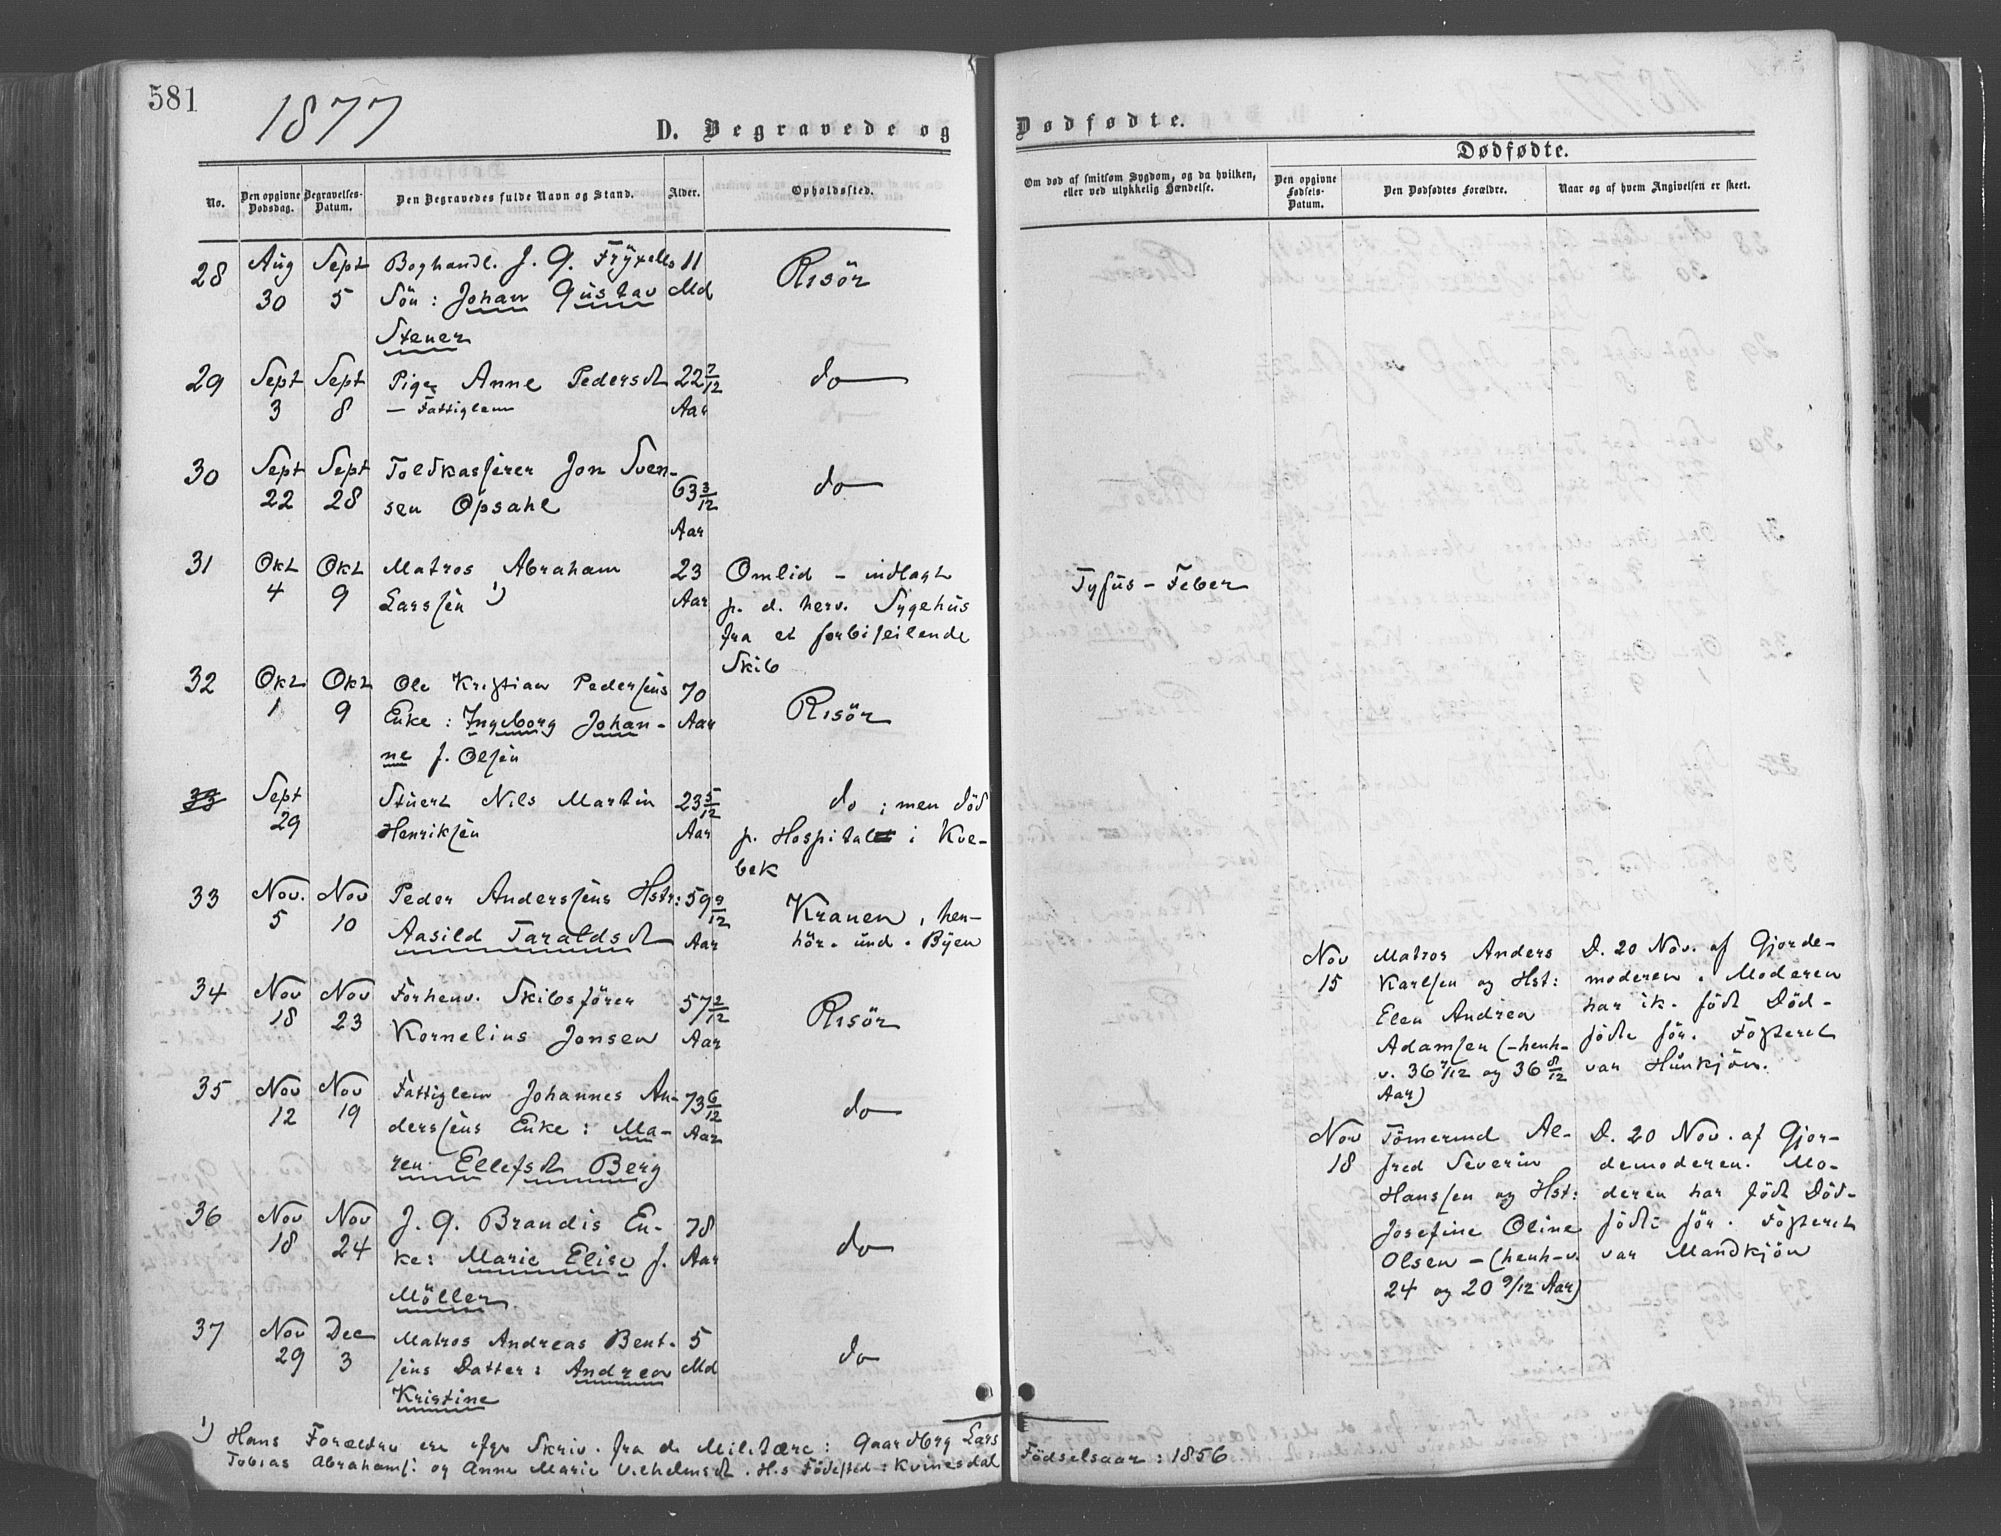 581
1877
D. Begravede og
Dødfødte.
No.
Den opgivne Dødsdag.
Begravelses-Datum.
Den Begravedes fulde Navn og Stand.
Alder.
Opholdssted.
Om død af smitsom Sygdom, og da hvilken,
eller ved ulykkelig Hændelse.
Dødfødte.
Den opgivne Fødsels-Datum.
Den Dødfødtes Forældre.
Naar og af hvem Angivelsen er skeet.
28 Aug 30 Sept 5
Boghandl. J. G. Fryxells
Sön: Johan Gustav
Stener
11 Md
Risör
29 Sept 3 Sept 8
Pige Anne Pedersdt
— Fattiglem
22 7/12 Aar
do
30 Sept 22 Sept 28
Toldkasserer Jon Sven-
sen Opsahl
63 3/12 Aar
do
31 Okt 4 Okt 9
Matros Abraham
Larssen 1)
23 Aar
Omlid - indlagt
p. d. herv. Sygehus
fra et forbiseilende
Skib
Tyfus - Feber
32 Okt 1 Okt 9
Ole Kristian Pedersens
Enke: Ingeborg Johan-
ne f. Olsen
70 Aar
Risör
33 Sept 29
Stuert Nils Martin
Henriksen
23 5/12 Aar
do; men död
p. Hospital i Kve-
bek
33 Nov. 5 Nov 10
Peder Anderssens Hstr:
Aasild Taraldsdt
59 9/12 Aar
Kranen, hen-
hör. und. Byen
34 Nov 18 Nov 23
Forhenv. Skibsförer
Kornelius Jonsen
57 2/12 Aar
Risör
35 Nov 12 Nov 19
Fattiglem Johannes An-
derssens Enke: Ma-
ren Ellefsdt Berg
73 6/12 Aar
do
36 Nov 18 Nov 24
J. G. Brandis En-
ke: Marie Elise f.
Möller
78 Aar
do
37 Nov 29 Dec 3
Matros Andreas Bent-
sens Datter: Andrea
Kristine
5 Md
do
Nov 15
Matros Anders
Karlsen og Hst:
Elen Andrea
Adamsen (-henh-
v. 36 7/12 og 36 8/12
Aar)
D. 20 Nov. af Gjorde-
moderen. Moderen
har ik. födt Död-
födte för. Fosteret
var Hunkjön.
Nov 18
Tömermd Al-
fred Severin
Hanssen og Hst:
Josefine Oline
Olsen - (henh-v.
24 og 20 9/12 Aar)
D. 20 Nov. af Gjor-
demoderen. Mo-
deren har födt Död-
födte för. Fosteret
var Mandkjön
1) Hans Forældre ere efter Skriv. fra d. Militære: Gaardbrg Lars
Tobias Abrahams. og Anne Marie Vilhelmsdt. H.s Födested: Kvinesdal
Födselsaar: 1856